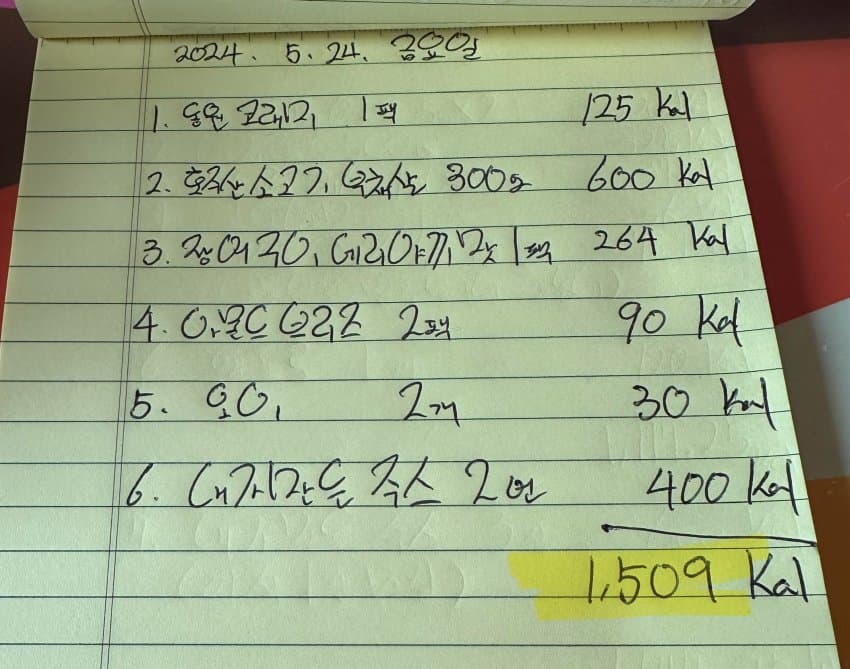 2024. 5. 24. 금요일
1. 동원 고래미 1팩 125 Kal
2. 호주산 소고기 300g 600 Kal
3. 장어구이 데리야끼맛 1팩 264 Kal
4. 아몬드 브리즈 2팩 90 Kal
5. 오이 2개 30 Kal
6. 돼지감자 즙 2번 400 Kal
1,509 Kal